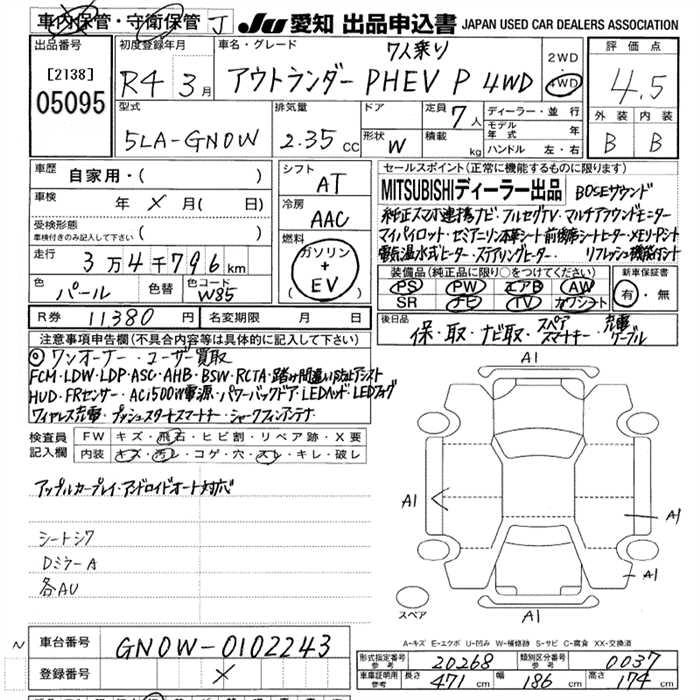 車内保管・守衛保管 J JU 愛知 出品申込書 JAPAN USED CAR DEALERS ASSOCIATION
出品番号 初度登録年月 車名・グレード 7人乗り 2WD 評価点
[2138] R4 3月 アウトランダー PHEV P 4WD 4WD 4.5
05095
型式 排気量 ドア 定員 7人 ディーラー・並行 外装 内装
5LA-GN0W 2.35 CC 形状 W 積載 kg モデル年式 年 B B
ハンドル 左・右
車歴 自家用・( ) シフト AT セールスポイント(正常に機能するものに限ります)
MITSUBISHIディーラー出品 BOSEサウンド
車検 年 メ 月( 日) 冷房 AAC 純正スマホ連携ナビ・フルセグTV・マルチアラウンドモニター
受検形態 車検付きのみ記入して下さい ( ) 燃料 マイパイロット・セミアニリン本革シート前後席シートヒーター・メモリーP.シート
ガソリン + EV 電気温水式ヒーター・ステアリングヒーター・ リフレッシュ機能付シート
走行 3万4千796 km 装備品(純正品に限り○をつけてください) 新車保証書
色 パール 色替 色コード W85 PS PW エアB AW 有・無
SR ナビ TV カワシート
R券 11380 円 名変期限 月 日 後日品 保・取・ナビ取・スペアスマートキー・充電ケーブル
注意事項申告欄(不具合内容等は具体的に記入して下さい)
◎ワンオーナー・ユーザー買取
FCM・LDW・LDP・ASC・AHB・BSW・RCTA・踏み間違い防止アシスト
HUD・FRセンサー・AC1500W電源・パワーバックドア・LEDヘッド・LEDフォグ
ワイヤレス充電・プッシュスタートスマートキー・シャークフィンアンテナ
検査員記入欄 FW キズ・飛石・ヒビ割・リペア跡・X要
内装 キズ・汚レ・コゲ・穴・スレ・キレ・破レ
アップルカープレイ・アンドロイドオート対応
シートシワ
Dミラー A
各AU
A1
A1
A1
A1
A1
スペア
A-キズ E-エクボ U-凹み W-補修跡 S-サビ C-腐食 XX-交換済
車台番号 GN0W-0102243
登録番号 メ
形式指定番号 参考 20268 類別区分番号 参考 0037
車庫証明用 参考 長さ 471 cm 幅 186 cm 高さ 174 cm